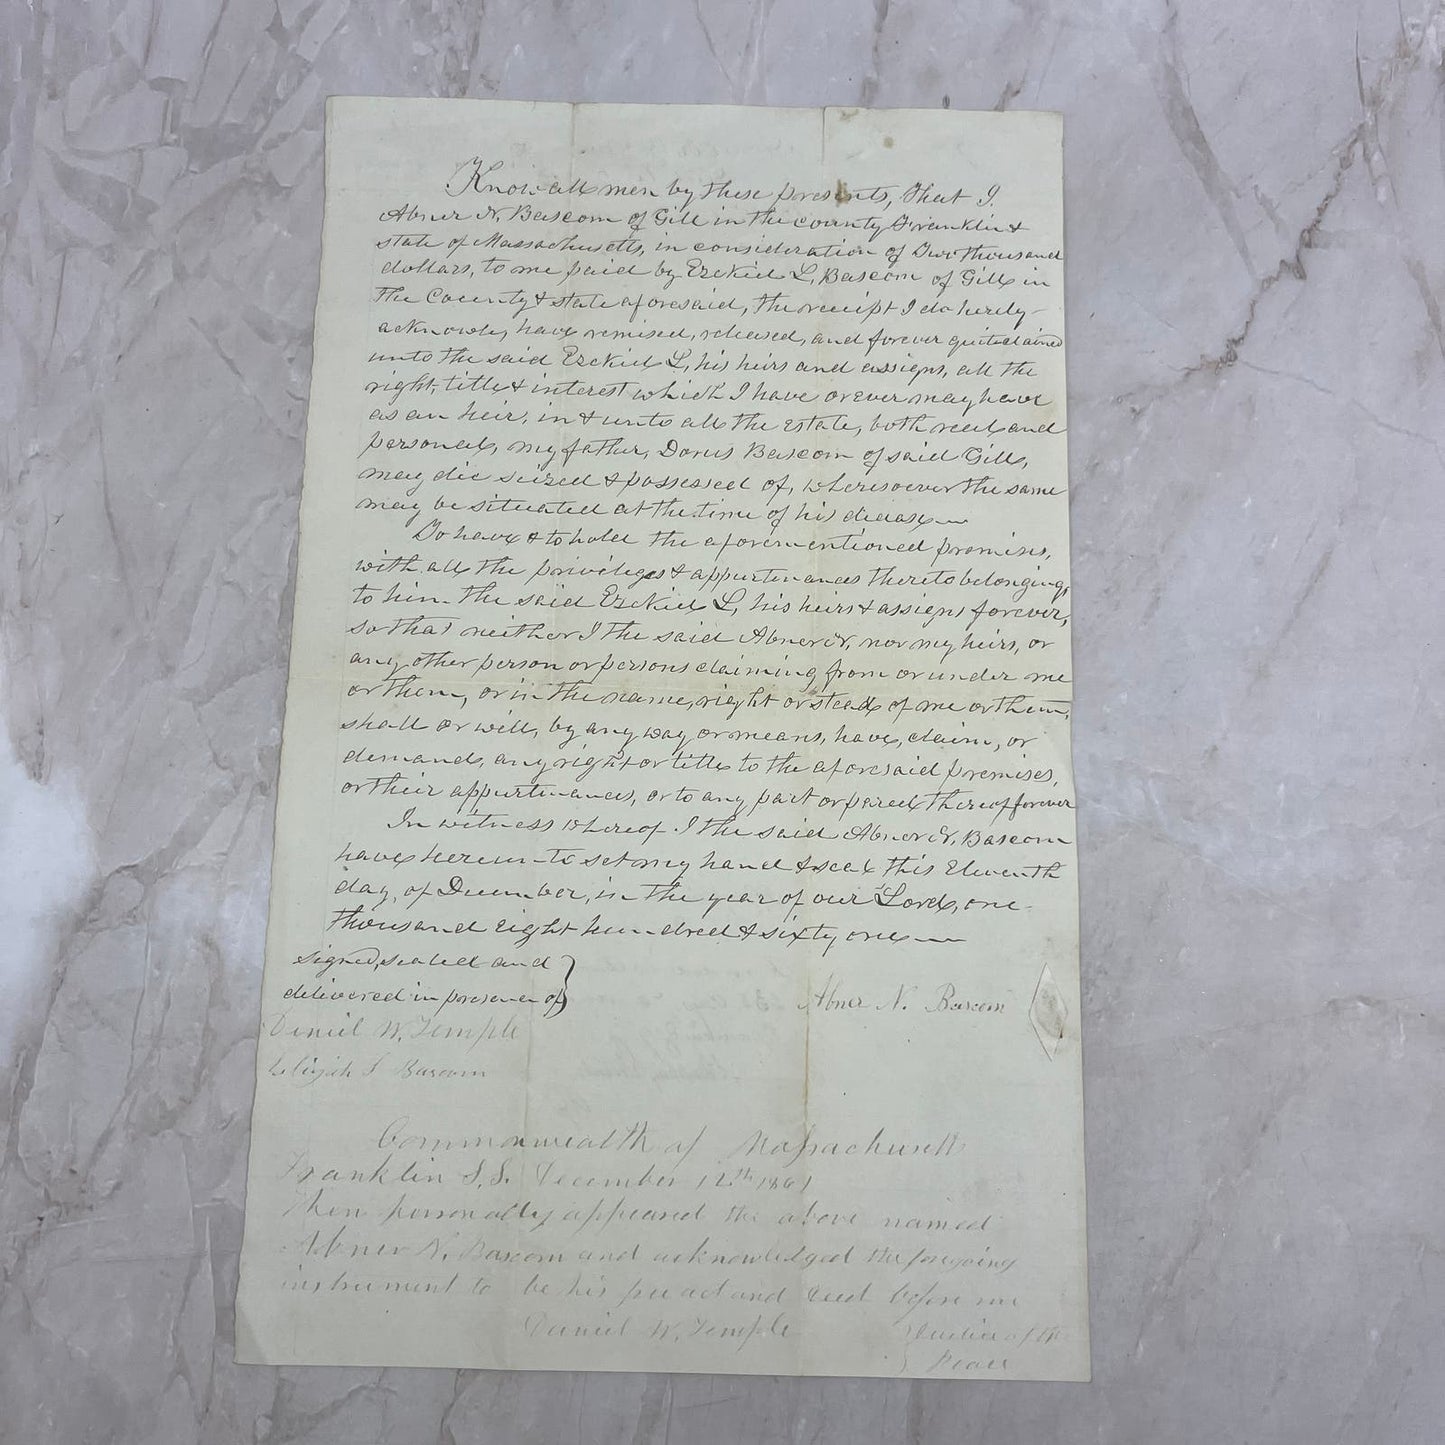 Know all men by these presents, that I.
Abner N. Bascom of Gill in the county Franklin &
state of Massachusetts, in consideration of Two thousand
dollars, to me paid by Ezekiel L, Bascom of Gill in
the County & state aforesaid, the receipt I do herby
acknowle, have remised, released, and forever quitclaimed
unto the said Ezekiel L, his heirs and assigns, all the
right, title & interest which I have or ever may have
as an heir, in & unto all the estate, both real and
personal, my father, Dorus Bascom of said Gill,
may die seized & possessed of, wheresoever the same
may be situated at the time of his decease
To have & to hold the aforementioned premises,
with all the privileges & appurtenances thereto belonging,
to him the said Ezekiel L, his heirs & assigns forever,
so that neither I the said Abner N, nor my heirs, or
any other person or persons claiming from or under me
or them, or in the name, right or stead of me or them,
shall or will, by any way or means, have, claim, or
demand, any right or title to the aforesaid premises,
or their appurtenances, or to any part or parcel thereof forever
In witness whereof I the said Abner N. Bascom
have hereunto set my hand & seal this Eleventh
day, of December, in the year of our Lord, one
thousand eight hundred & sixty one
signed, sealed and
delivered in presence of
Abner N. Bascom
Daniel W. Temple
Elijah S Bascom
Commonwealth of Massachusetts
Franklin S.S. December 12th 1861
Then personally appeared the above named
Abner N. Bascom and acknowledged the foregoing
instrument to be his free act and deed before me
Daniel W. Temple Justice of the
Peace